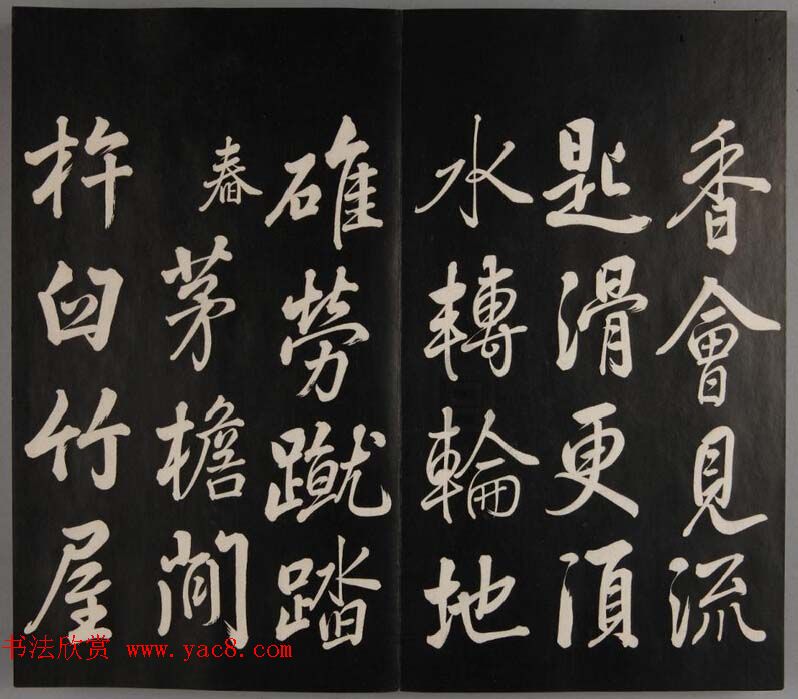 香會見流
匙滑更須
水轉輪地
碓勞蹴踏
舂茅檐間
杵臼竹屋
书法欣赏 www.yac8.com